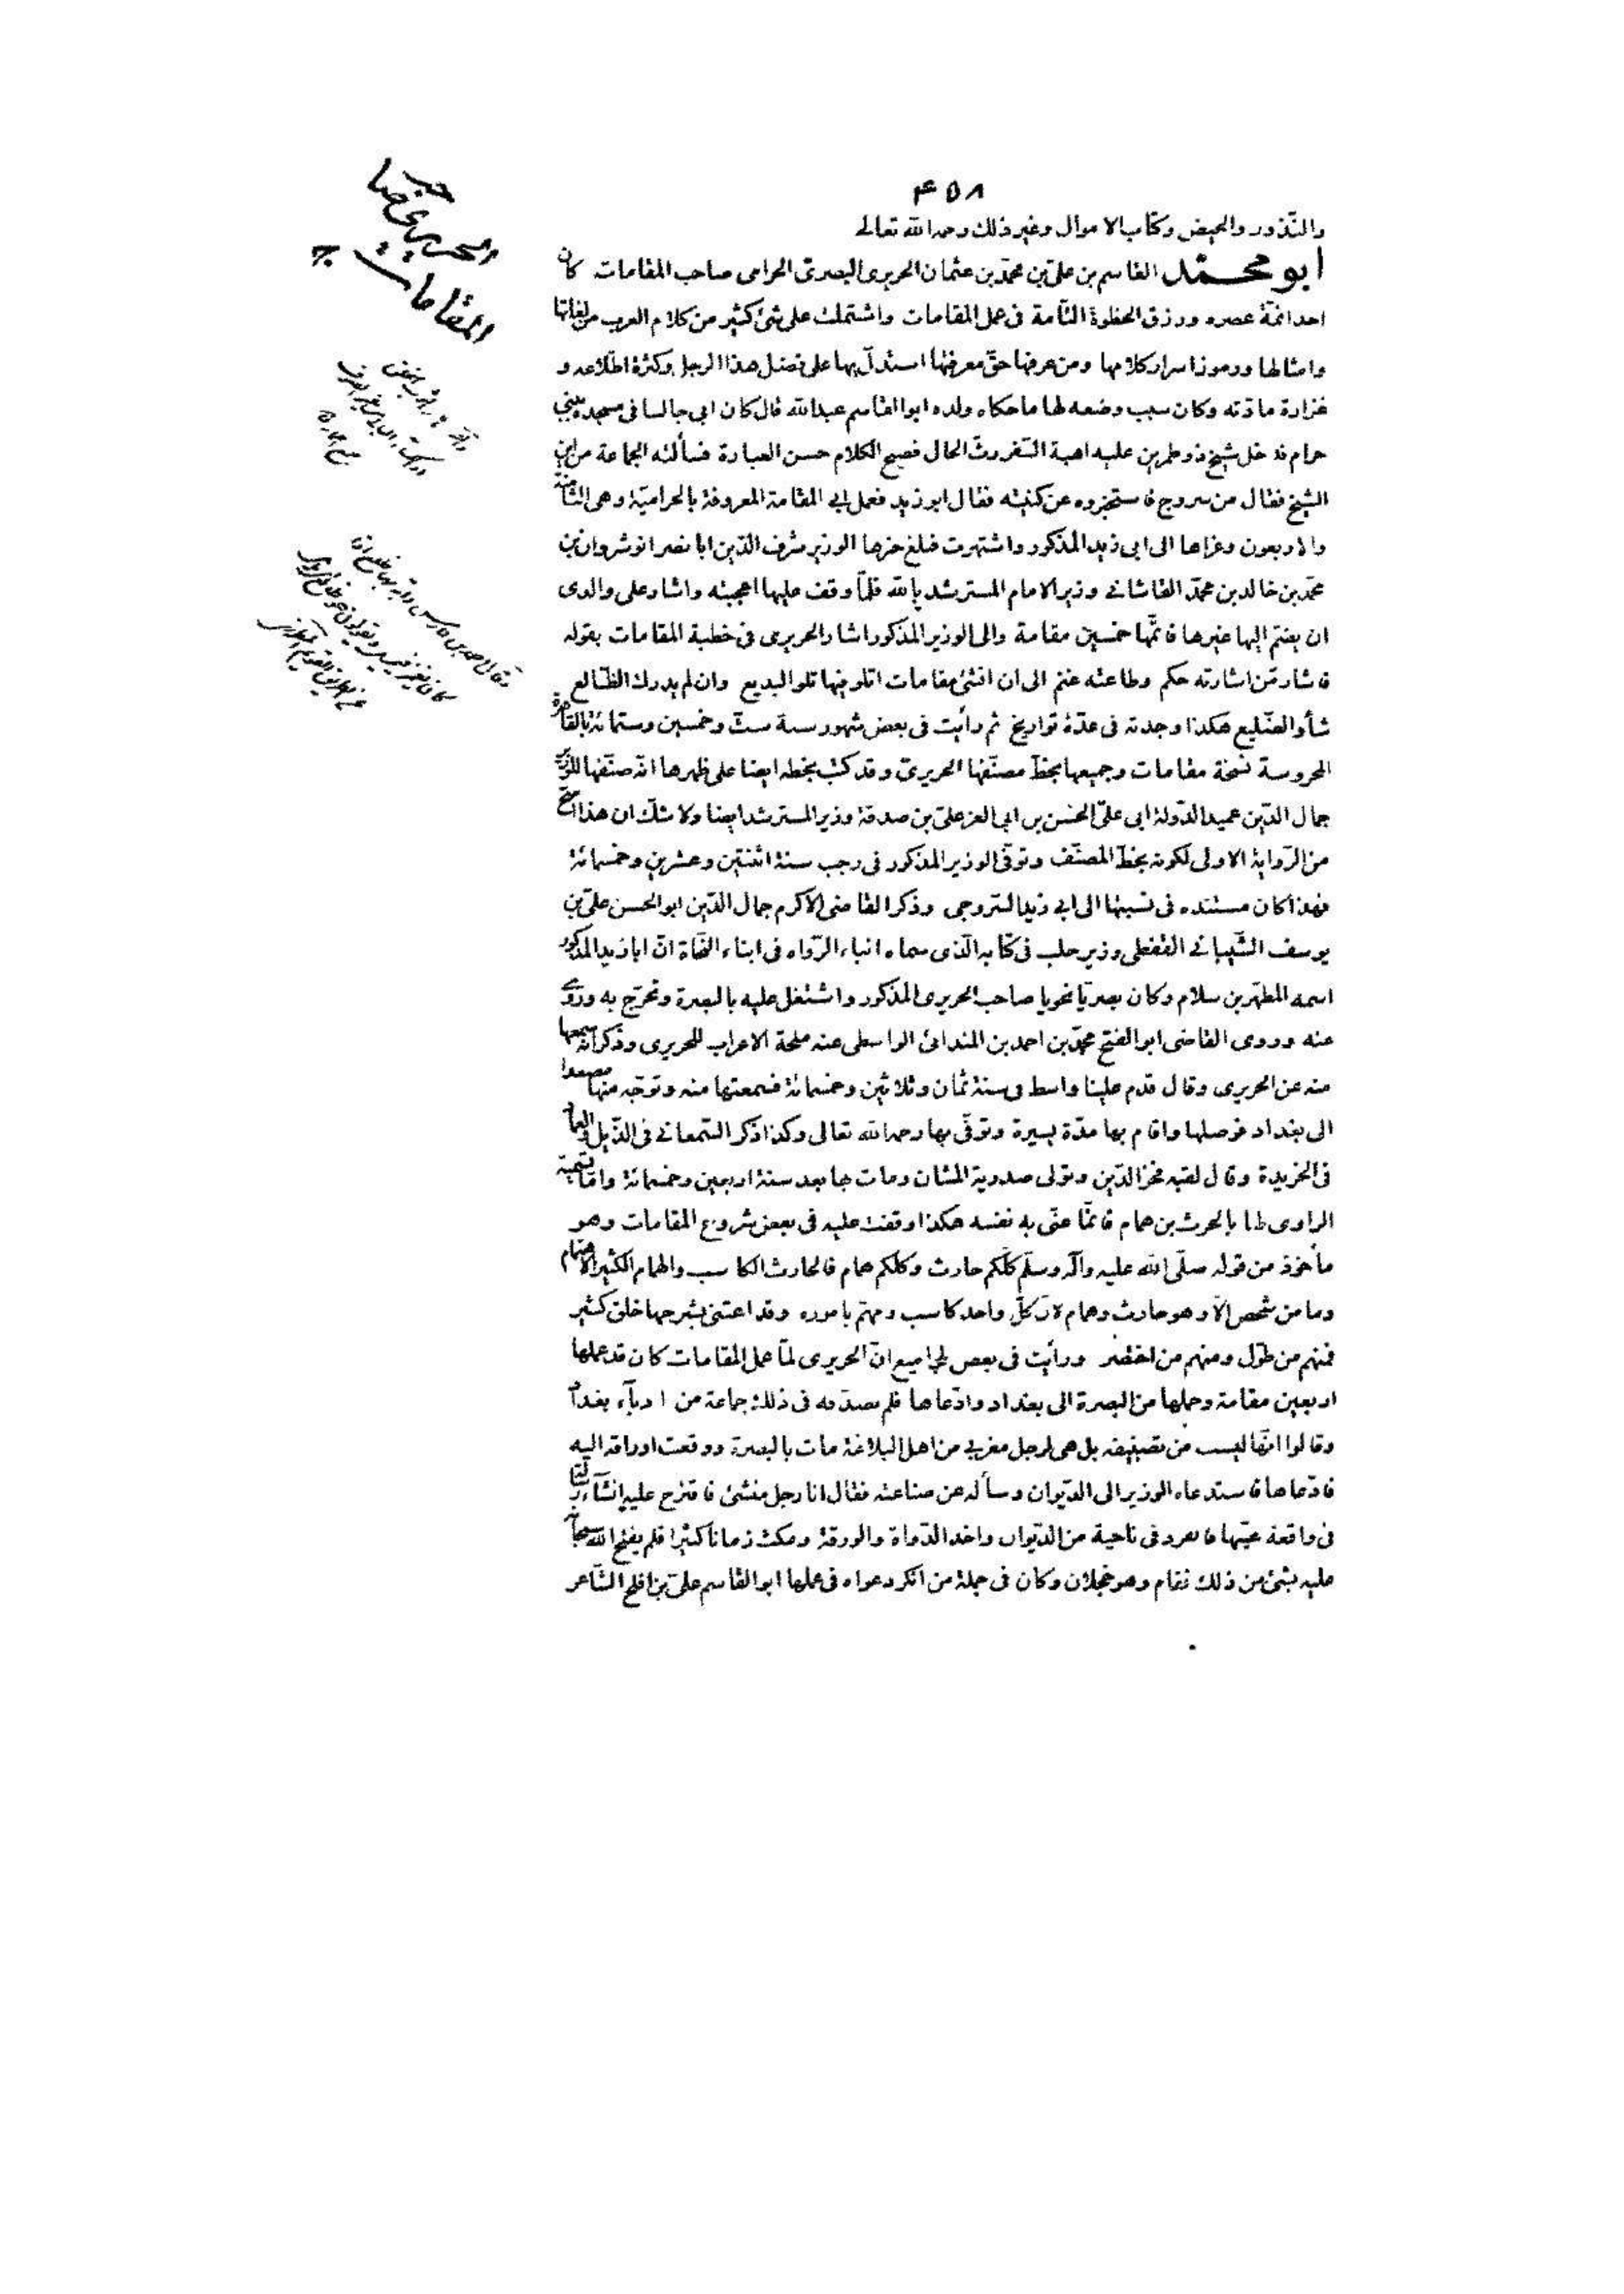 ٤٥٨
والنّذور والحيض وكتاب الاموال وغير ذلك رحمه الله تعالى
ابو محمّد القاسم بن علىّ بن محمّد بن عثمان الحريرى البصرىّ الحرامى صاحب المقامات كان
احد ائمّة عصره ورزق الحظوة التّامة فى عمل المقامات واشتملت على شئ كثير من كلام العرب من لغاتها
وامثالها ورموز اسرار كلامها ومن عرفها حقّ معرفتها استدلّ بها على فضل هذا الرجل وكثرة اطّلاعه و
غزارة مادّته وكان سبب وضعه لها ما حكاه ولده ابو القاسم عبد الله قال كان ابى جالسا فى مسجده ببنى
حرام فدخل شيخ ذو طمرين عليه اهبة السّفر رثّ الحال فصيح الكلام حسن العبارة فسألته الجماعة من اين
الشيخ فقال من سروج فاستخبروه عن كنيته فقال ابو زيد فعمل ابى المقامة المعروفة بالحراميّة وهى الثامنة
والاربعون وعزاها الى ابى زيد المذكور واشتهرت فبلغ خبرها الوزير شرف الدّين ابا نصر انوشروان بن
محمّد بن خالد بن محمّد القاشانى وزير الامام المسترشد بالله فلمّا وقف عليها اعجبته واشار على والدى
ان يضمّ اليها غيرها فاتمّها خمسين مقامة والى الوزير المذكور اشار الحريرى فى خطبة المقامات بقوله
فاشار من اشارته حكم وطاعته غنم الى ان انشئ مقامات اتلو فيها تلو البديع وان لم يدرك الظّالع
شأو الضّليع هكذا وجدته فى عدّة تواريخ ثم رأيت فى بعض شهور سنة ستّ وخمسين وستمائة بالقاهرة
المحروسة نسخة مقامات وجميعها بخطّ مصنّفها الحريرىّ وقد كتب بخطه ايضا على ظهرها انّه صنّفها للوزير
جمال الدّين عميد الدّولة ابى علىّ الحسن بن ابى العز علىّ بن صدقة وزير المسترشد ايضا ولا شكّ ان هذا اصحّ
من الرّواية الاولى لكونه بخطّ المصنّف وتوفّى الوزير المذكور فى رجب سنة اثنتين وعشرين وخمسمائة
فهذا كان مستنده فى نسبتها الى ابى زيد السّروجى وذكر القاضى الاكرم جمال الدّين ابو الحسن علىّ بن
يوسف الشّيبانى القفطى وزير حلب فى كتابه الّذى سماه انباء الرّواه فى ابناء النّحاة انّ ابا زيد المذكور
اسمه المطهّر بن سلام وكان بصريّا نحويا صاحب الحريرى المذكور واشتغل عليه بالبصرة وتخرّج به وروى
عنه وروى القاضى ابو الفتح محمّد بن احمد بن المندائى الواسطى عنه ملحة الاعراب للحريرى وذكر انّه سمعها
منه عن الحريرى وقال قدم علينا واسط فى سنة ثمان وثلاثين وخمسمائة فسمعتها منه وتوجّه منها مصعدا
الى بغداد فوصلها واقام بها مدّة يسيرة وتوفّى بها رحمه الله تعالى وكذا ذكر السّمعانى فى الذّيل والعماد
فى الخريدة وقال لقبه فخر الدّين وتولى صدرية المشان ومات بها بعد سنة اربعين وخمسمائة وامّا تسمية
الراوى لها بالحرث بن همام فانمّا عنى به نفسه هكذا وقفت عليه فى بعض شروع المقامات وهو
مأخوذ من قوله صلّى الله عليه وآله وسلّم كلّكم حارث وكلكم همام فالحارث الكاسب والهمام الكثير الاهتمام
وما من شخص الّا وهو حارث وهمام لانّ كلّ واحد كاسب ومهتمّ باموره وقد اعتنى بشرحها خلق كثير
فمنهم من طوّل ومنهم من اختصر ورأيت فى بعض المجاميع انّ الحريرى لمّا عمل المقامات كان قد عملها
اربعين مقامة وحملها من البصرة الى بغداد وادّعاها فلم يصدّقه فى ذلك جماعة من ادبآء بغداد
وقالوا انّها ليست من تصنيفه بل هى لرجل مغربى من اهل البلاغة مات بالبصرة ووقعت اوراقه اليه
فادّعاها فاستدعاه الوزير الى الدّيوان وسأله عن صناعته فقال انا رجل منشئ فاقترح عليه انشآء رسالة
فى واقعة عيّنها فانفرد فى ناحية من الدّيوان واخذ الدّواة والورقة ومكث زمانا كثيرا فلم يفتح الله سبحانه
عليه بشئ من ذلك فقام وهو خجلان وكان فى جملة من انكر دعواه فى عملها ابو القاسم علىّ بن افلح الشّاعر
الحريرى صاحب
المقامات